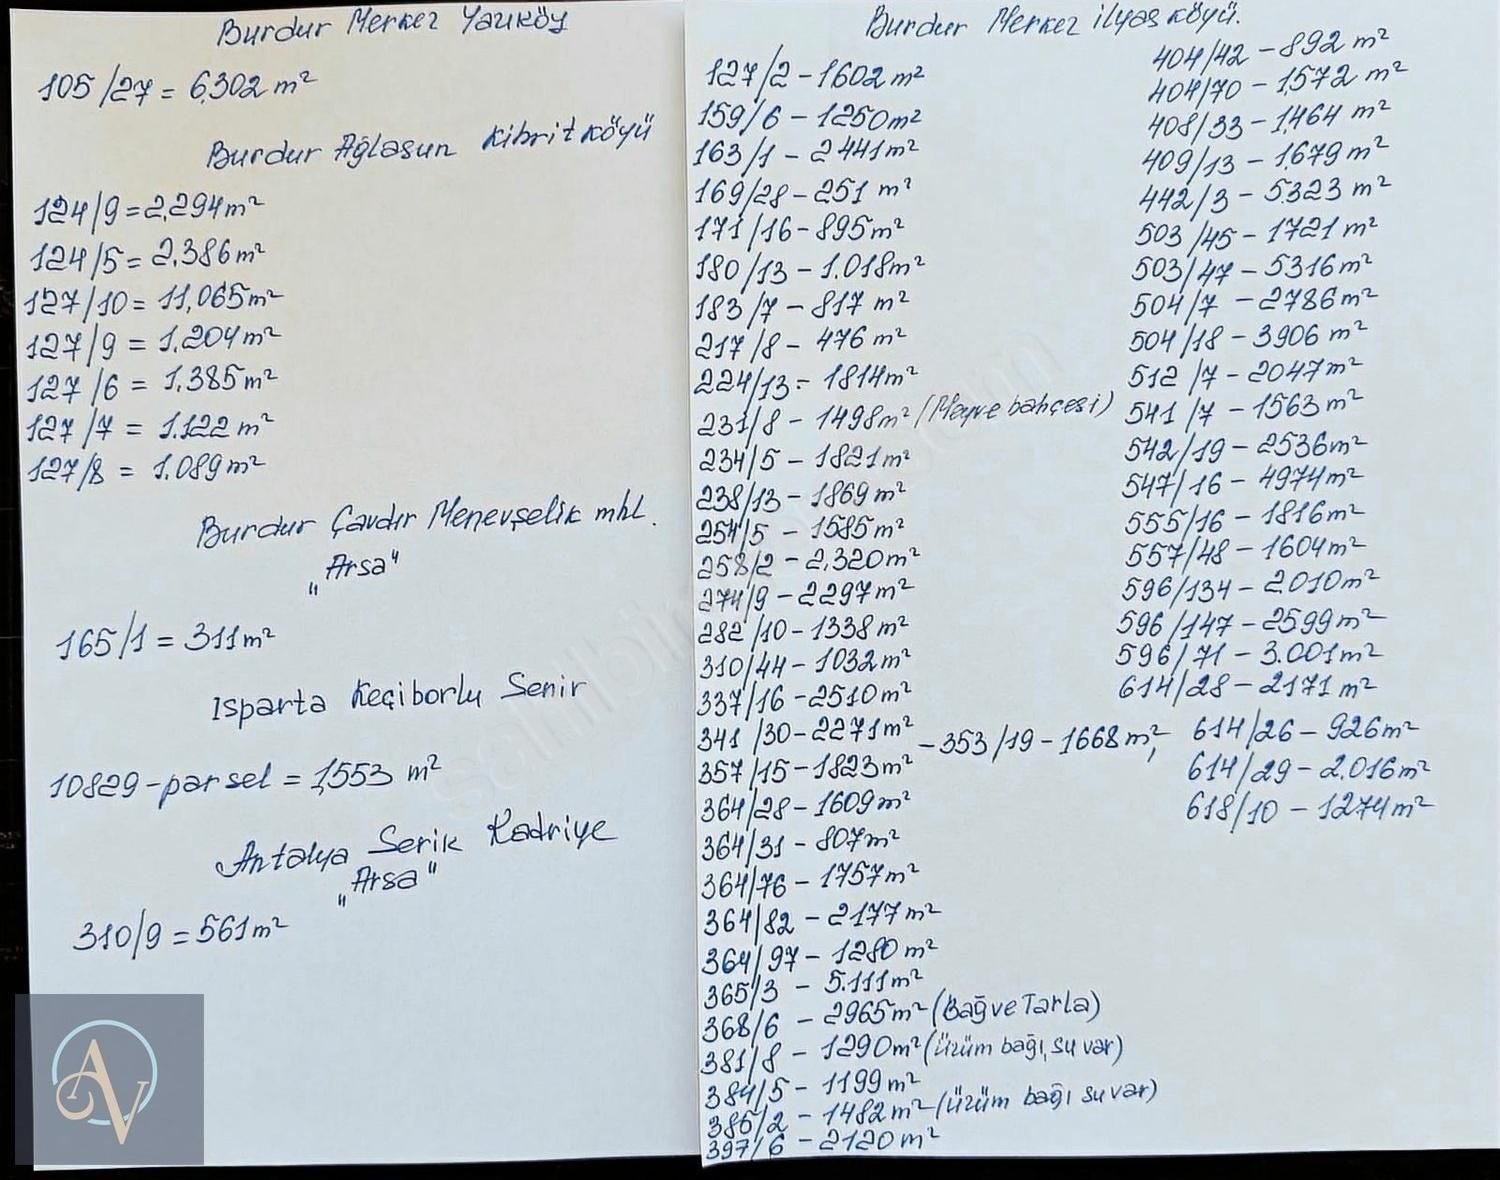 Burdur Merkez Yazıköy
105/27 = 6.302 m²
Burdur Ağlasun Kibrit köyü
124/9 = 2.294 m²
124/5 = 2.386 m²
127/10 = 11,065 m²
127/9 = 1.204 m²
127/6 = 1.385 m²
127/7 = 1.122 m²
127/8 = 1.089 m²
Burdur Çavdır Menevşelik mhl.
"Arsa"
165/1 = 311 m²
Isparta Keçiborlu Senir
10829-parsel = 1,553 m²
Antalya Serik Kadriye
"Arsa"
310/9 = 561 m²
AV
Burdur Merkez ilyas köyü.
127/2 - 1602 m²
159/6 - 1250 m²
163/1 - 2441 m²
169/28 - 251 m²
171/16 - 895 m²
180/13 - 1.018 m²
183/7 - 817 m²
217/8 - 476 m²
224/13 - 1814 m²
231/8 - 1498 m² (Meyve bahçesi)
234/5 - 1821 m²
238/13 - 1869 m²
254/5 - 1585 m²
258/2 - 2,320 m²
274/9 - 2297 m²
282/10 - 1338 m²
310/44 - 1032 m²
337/16 - 2510 m²
341/30 - 2271 m² - 353/19 - 1668 m²,
357/15 - 1823 m²
364/28 - 1609 m²
364/31 - 807 m²
364/76 - 1757 m²
364/82 - 2177 m²
364/97 - 1280 m²
365/3 - 5.111 m²
368/6 - 2965 m² (Bağ ve Tarla)
381/8 - 1290 m² (Üzüm bağı, su var)
384/5 - 1199 m²
386/2 - 1482 m² (Üzüm bağı su var)
397/6 - 2120 m²
404/42 - 892 m²
404/70 - 1,572 m²
408/33 - 1,464 m²
409/13 - 1.679 m²
442/3 - 5.323 m²
503/45 - 1721 m²
503/47 - 5316 m²
504/7 - 2786 m²
504/18 - 3906 m²
512/7 - 2047 m²
541/7 - 1563 m²
542/19 - 2536 m²
547/16 - 4974 m²
555/16 - 1816 m²
557/48 - 1604 m²
596/134 - 2.010 m²
596/147 - 2599 m²
596/71 - 3.001 m²
614/28 - 2171 m²
614/26 - 926 m²
614/29 - 2.016 m²
618/10 - 1274 m²